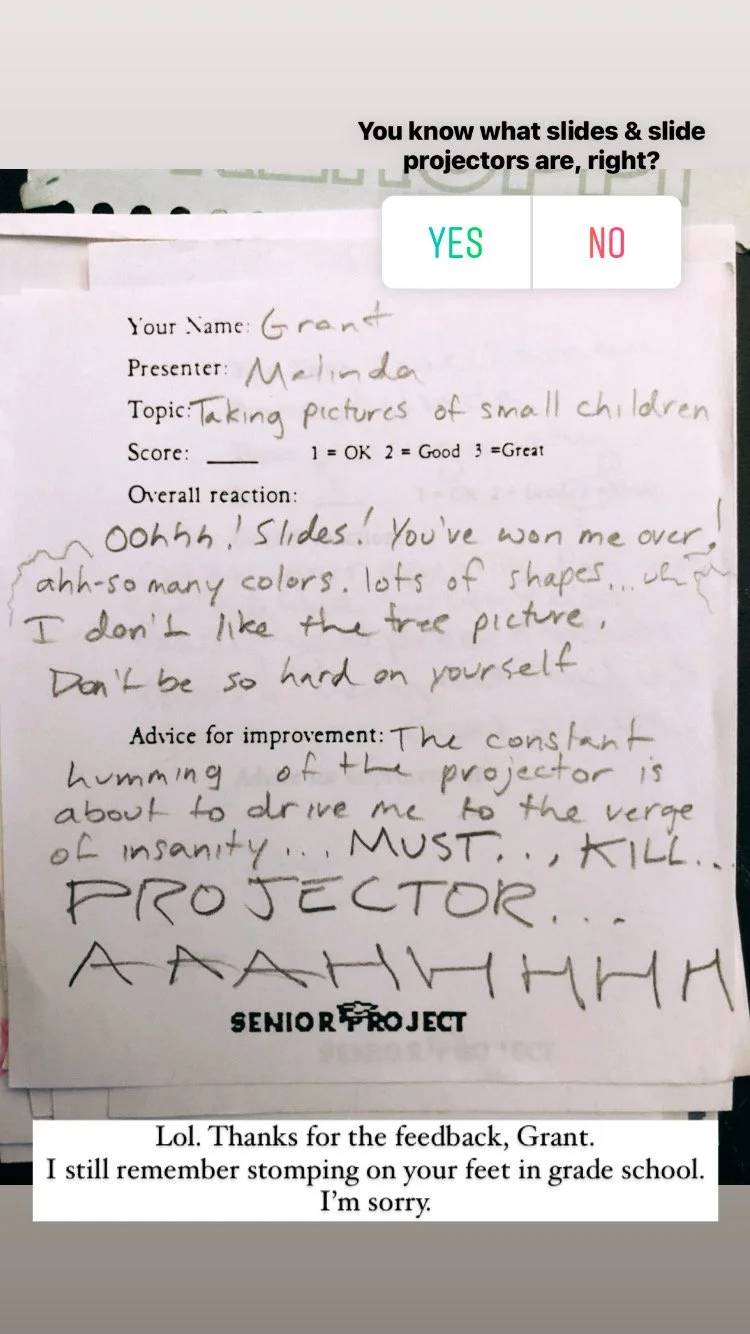 You know what slides & slide
projectors are, right?
YES NO
Your Name: Grant
Presenter: Melinda
Topic: Taking pictures of small children
Score: ____ 1 = OK 2 = Good 3 =Great
Overall reaction:
Oohhh! Slides! You've won me over!
ahh-so many colors. lots of shapes... uh
I don't like the tree picture.
Don't be so hard on yourself
Advice for improvement: The constant
humming of the projector is
about to drive me to the verge
of insanity... MUST..., KILL...
PROJECTOR...
AAAHHHHH
SENIOR PROJECT
Lol. Thanks for the feedback, Grant.
I still remember stomping on your feet in grade school.
I'm sorry.